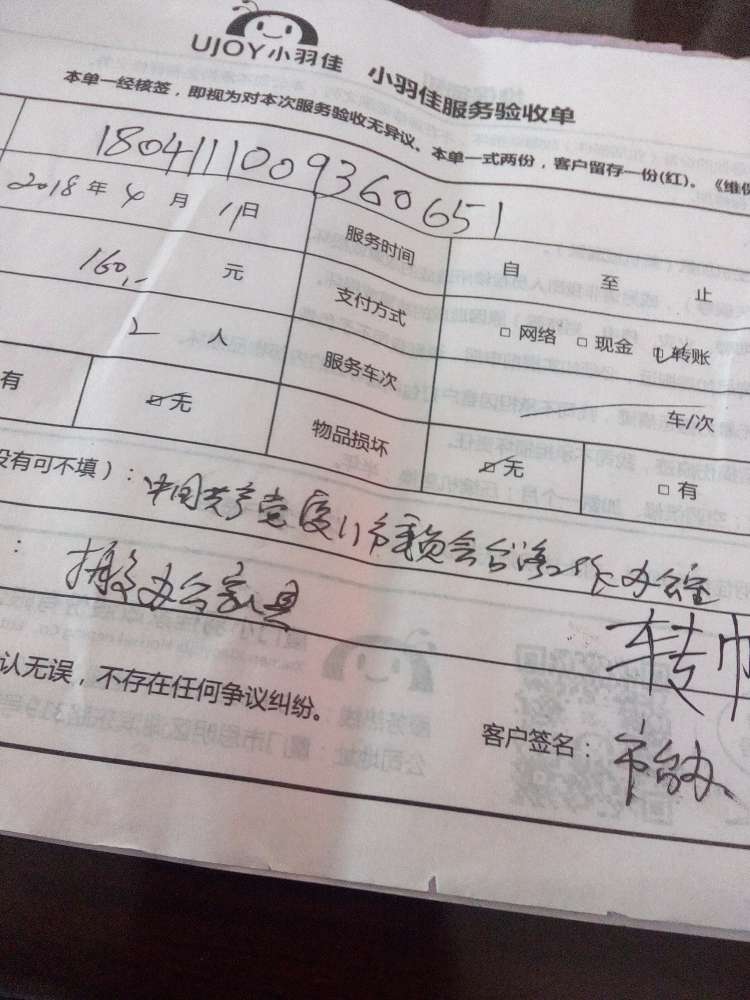 UJOY小羽佳 小羽佳服务验收单
本单一经核签，即视为对本次服务验收无异议。本单一式两份，客户留存一份(红)。《维保
1804111009360651
2018年4月11日 服务时间 自 至 止
160.- 元 支付方式 □网络 □现金 ☑转账
2人 服务车次 车/次
有 ☑无 物品损坏 ☑无 □有
没有可不填）：中国共产党厦门市委员会台湾工作办公室
：搬办公家具
转
认无误，不存在任何争议纠纷。 客户签名：市台办